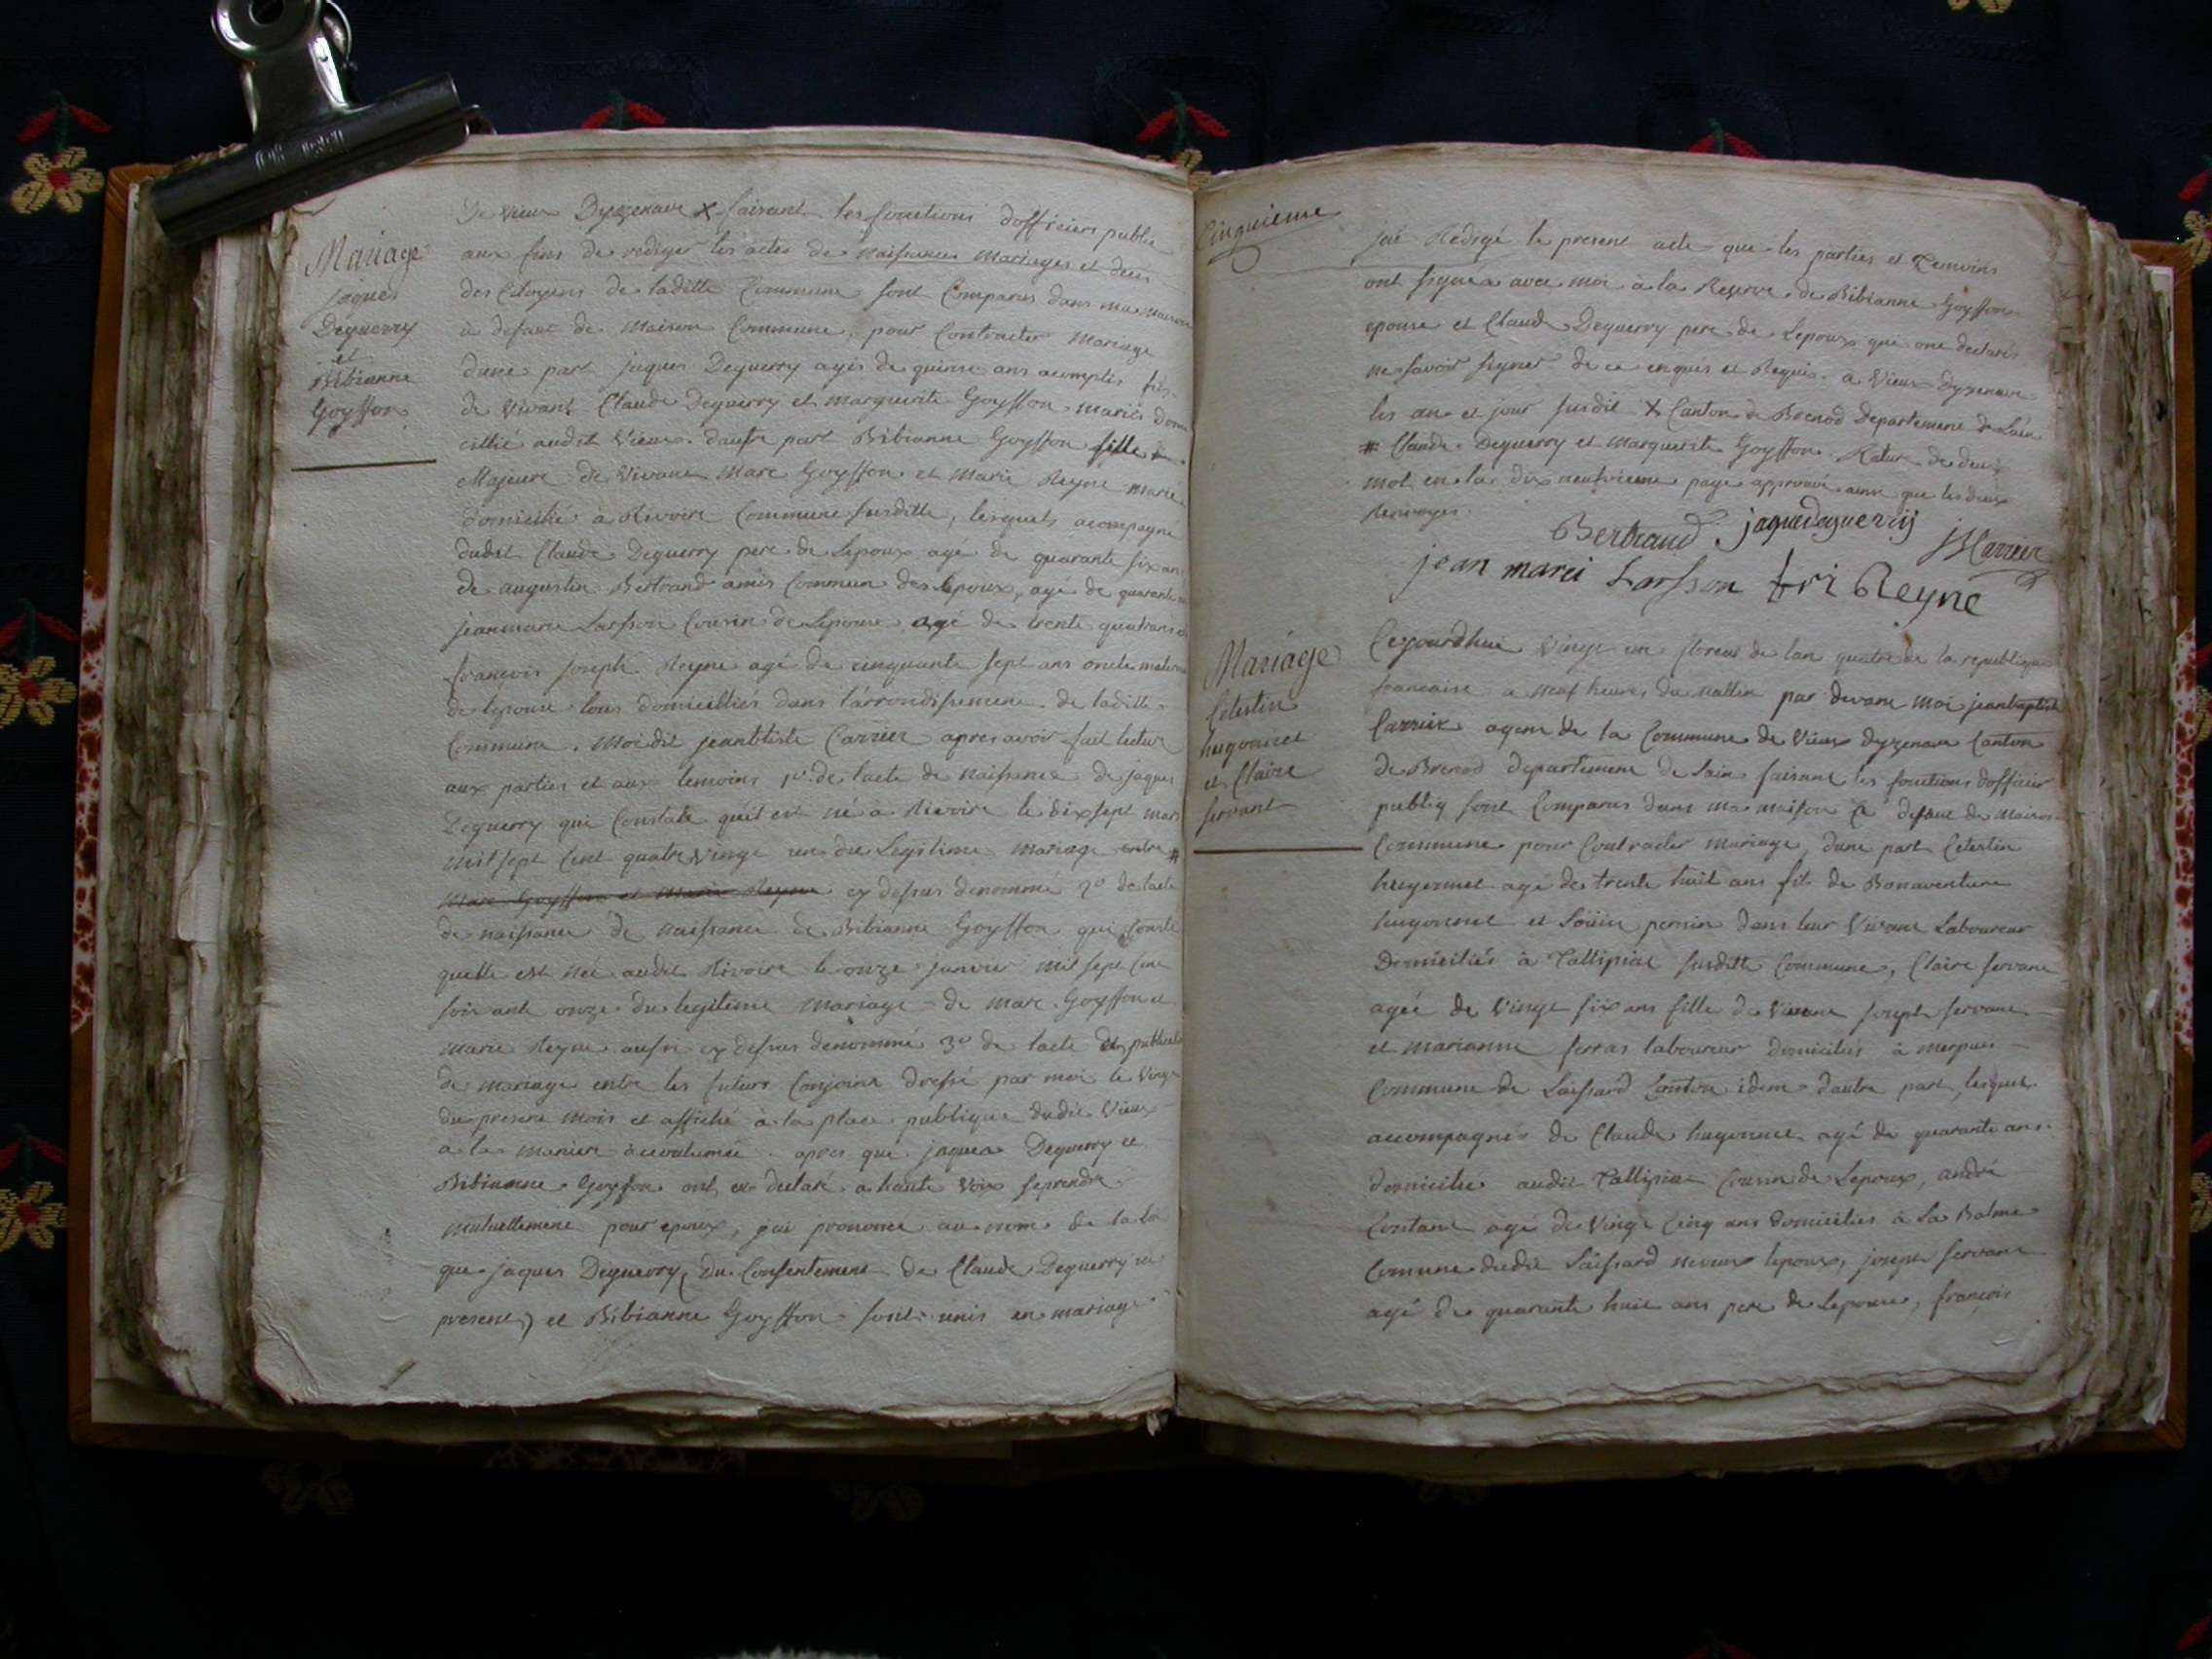 Mariage
jaques
Deguerry
et
Bibianne
Goyffon
De vieux Dyzenave X faisant les fonctions dofficiers public
aux fins de rediger les actes de Naissances Mariages et decés
des Citoyens de laditte Commune sont Comparus dans ma maison
a defaut de Maison Commune, pour Contracter Mariage
dune part jaques Deguerry agés de quinse ans acomplis fils
de Vivant Claude Deguerry et marguerite Goyffon mariés domi
cillié audit Vieux. dautre part Bibianne Goyffon fille
Majeure de Vivant Marc Goyffon et Marie Reyne mariés
domicilié à Rivoire Commune susditte, lesquels acompagné
dudit Claude Deguerry pere de Lepoux agé de quarante six ans
de augustin Bertrand amis Commun des Epoux, agé de quarante
jeanmarie Larsson Cousin de Lepouse agé de trente quatrans et
francois joseph Reyne agé de cinquante sept ans oncle maternel
de lépouse tous domicilliés dans l'arrondissement de laditte
Commune. Moidit jeanbtiste Carrier apres avoir fait lecture
aux parties et aux temoins 1º de lacte de Naissance de jaques
Deguerry qui Constate quil est né a Rivoire le dix sept mars
mil sept Cent quatre vingt un du Legitime mariage entre #
Marc Goyffon et Marie Reyne cy dessus denommé 2º de lacte
de naissance de Naissance de Bibianne Goyffon qui Conste
quelle est née audit Rivoire le onze janvier mil sept Cent
soixante onze du legitime mariage de Marc Goyffon et
Marie Reyne aussi cy dessus denommé 3º de lacte de publicat
de mariage entre les futurs Conjoins dressé par moi le Vingt
du present mois et affiché à la place publique dudit Vieux
a la maniere accoutumée. apres que jaques Deguerry et
Bibianne Goyffon ont declaré a haute voix se prendre
mutuellement pour epoux, jai prononcé au nom de la Loi
que jaques Deguerry (du Consentement de Claude Deguerry ici
present) et Bibianne Goyffon sont unis en mariage
Cinquieme
jai Redigé le present acte que les parties et Temoins
ont signes avec moi à la Reserve de Bibianne Goyffon
epouse et Claude Deguerry pere de Lepoux qui ont declarés
ne savoir signer de ce enquis et Requis. a Vieux dyzenave
les an et jour susdit X Canton de Brenod Departement de Lain
# Claude Deguerry et Marguerite Goyffon. Rature de deux
mot en la dix neufvieme page approuvé ainsi que les deux
Renvoyes.
Bertrand jaquedeguerry
JBCarrier
jean marei Larsson fri Reyne
Mariage
Celestin
hugonnet
et Claire
servant
Cejourdhui vingt un floreal de lan quatre de la republique
francaise a neuf heures du Mattin par devant moi jeanbaptiste
Carrier agent de la Commune de Vieux dyzenave Canton
de Brenod departement de Lain faisant les fonctions dofficier
publiq sont Comparus dans ma maison à defaut de Maison
Commune pour Contracter mariage, dune part Celestin
hugonnet agé de trente huit ans fils de Bonaventure
hugonnet et Loüise persin dans leur Vivant Laboureur
Domiciliés à Tallipiat susditte Commune, Claire servant
agée de Vingt six ans fille de Vivant joseph servant
et marianne ferras laboureur domiciliés à merpuis
Commune de Laissard Canton idem dautre part, lesquels
accompagnés de Claude hugonnet agé de quarante ans
domicilié audit Tallipiat Cousin de Lepoux, andré
Constant agé de Vingt Cinq ans domiciliés à La Balme
Comune dudit Laissard neveux lepoux, joseph servant
agé de quarante huit ans pere de Lepouse, francois